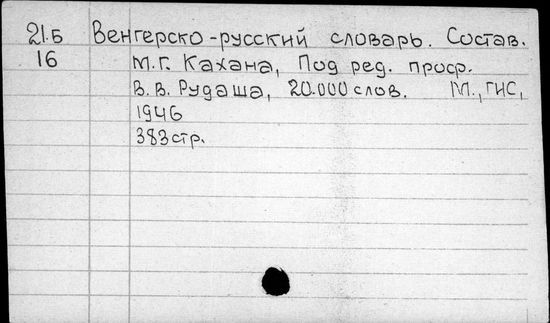 21.Б Венгерско-русский словарь. Состав.
16 М.Г. Кахана, Под ред. проф.
В.В. Рудаша, 20.000 слов. М., ГИС,
1946
383 стр.